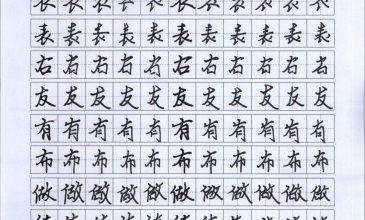 表表表表表表表表表表表
右右右右右右右右右右右
友友友友友友友友友友友
有有有有有有有有有有有
布布布布布布布布布布布
做做做做做做做做做做做